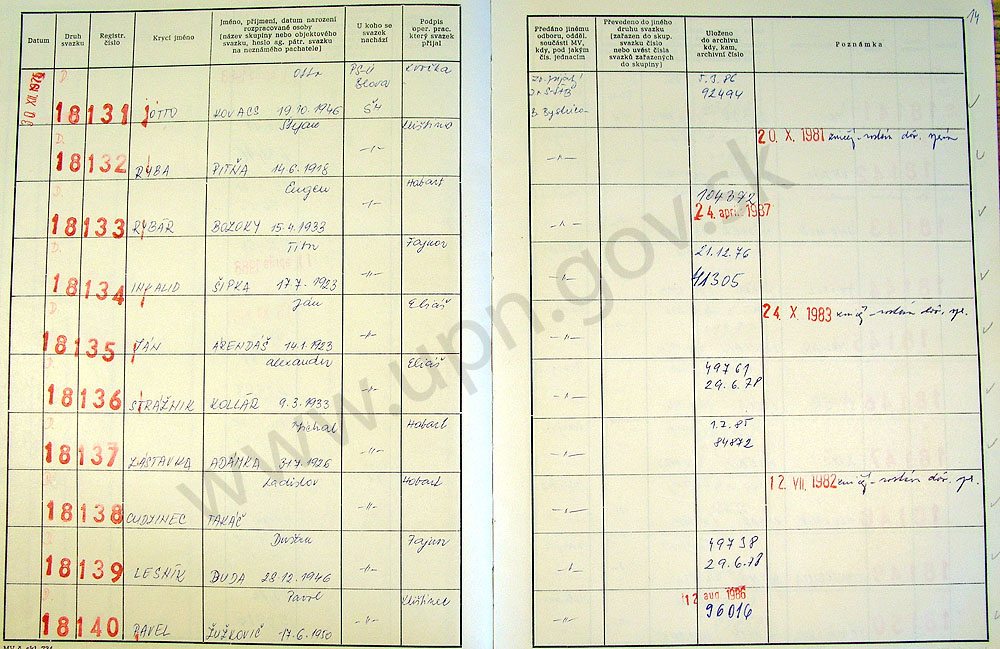 Datum
Druh svazku
Registr. číslo
Krycí jméno
Jméno, příjmení, datum narození rozpracované osoby (název skupiny nebo objektového svazku, heslo ag. pátr. svazku na neznámého pachatele)
U koho se svazek nachází
Podpis oper. prac. který svazek přijal
Předáno jinému odboru, odděl. součásti MV, kdy, pod jakým čís. jednacím
Převedeno do jiného druhu svazku (zařazen do skup. svazku číslo nebo uvést čísla svazků zařazených do skupiny)
Uloženo do archivu kdy, kam, archivní číslo
Poznámka
14
D. 18131 OTTO Otto KOVACS 19.10.1946
B. Bystrica 5.3.86 92494
D. 18132 RYBA Štefan PITŇA 14.6.1918 -"- Klištinec
-"- 20. X. 1981
D. 18133 RYBÁR Eugen BOZOKY 15.4.1933 -"- Hobart
-"- 104392 24. apr. 1987
D. 18134 INVALID Titus ŠIPKA 17.7.1923 -"- Fajnor
-"- 21.12.76 41305
18135 JÁN Ján ARENDÁŠ 14.1.1923 -"- Eliáš
24. X. 1983
18136 STRÁŽNIK Alexander KOLLÁR 9.3.1933 -"- Eliáš
-"- 49761 29.6.78
18137 ZÁSTAVKA Michal ADAMKA -"- Hobart
-"- 1.2.85 84872
18138 CUDZINEC Ladislav TAKÁČ -"- Hobart
-"- 12. VII. 1982
18139 LESNÍK Dušan DUDA 28.12.1946 -"- Fajnor
-"- 49738 29.6.78
18140 PAVEL Pavol ŽUŽKOVIČ 17.6.1950 -"- Klištinec
-"- 12 aug 1986 96016
www.upn.gov.sk